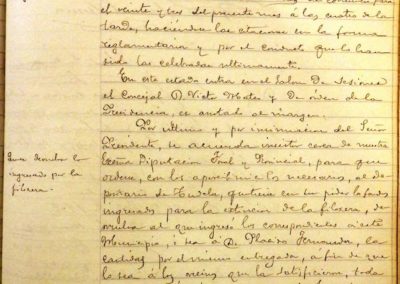 el veinte y tres del presente mes á las cuatro de la
tarde, haciendo las citaciones en la forma
reglamentaria y por el conducto que lo han
sido las celebradas ultimamente.
En este estado entra en el Salon de Sesiones
el Concejal D. Victor Mateo y de órden de la
Presidencia, es anotado al margen.
Por ultimo y por insinuacion del Señor
Presidente, se acuerda insistir cerca de nuestra
Excma Diputacion Foral y Provincial, para que
ordene, con los apremios necesarios, al De
positario de Tudela, que tiene en su poder lo
ingresado para la estincion de la filoxera, de
vuelva al que ingresó los correspondientes á este
Municipio, ó sea á D. Placido Fernandez, la
cantidad por el mismo entregada, á fin de que
la sea á los vecinos que la satisficieron, toda
Que se devuelva lo
ingresado por la
filoxera.